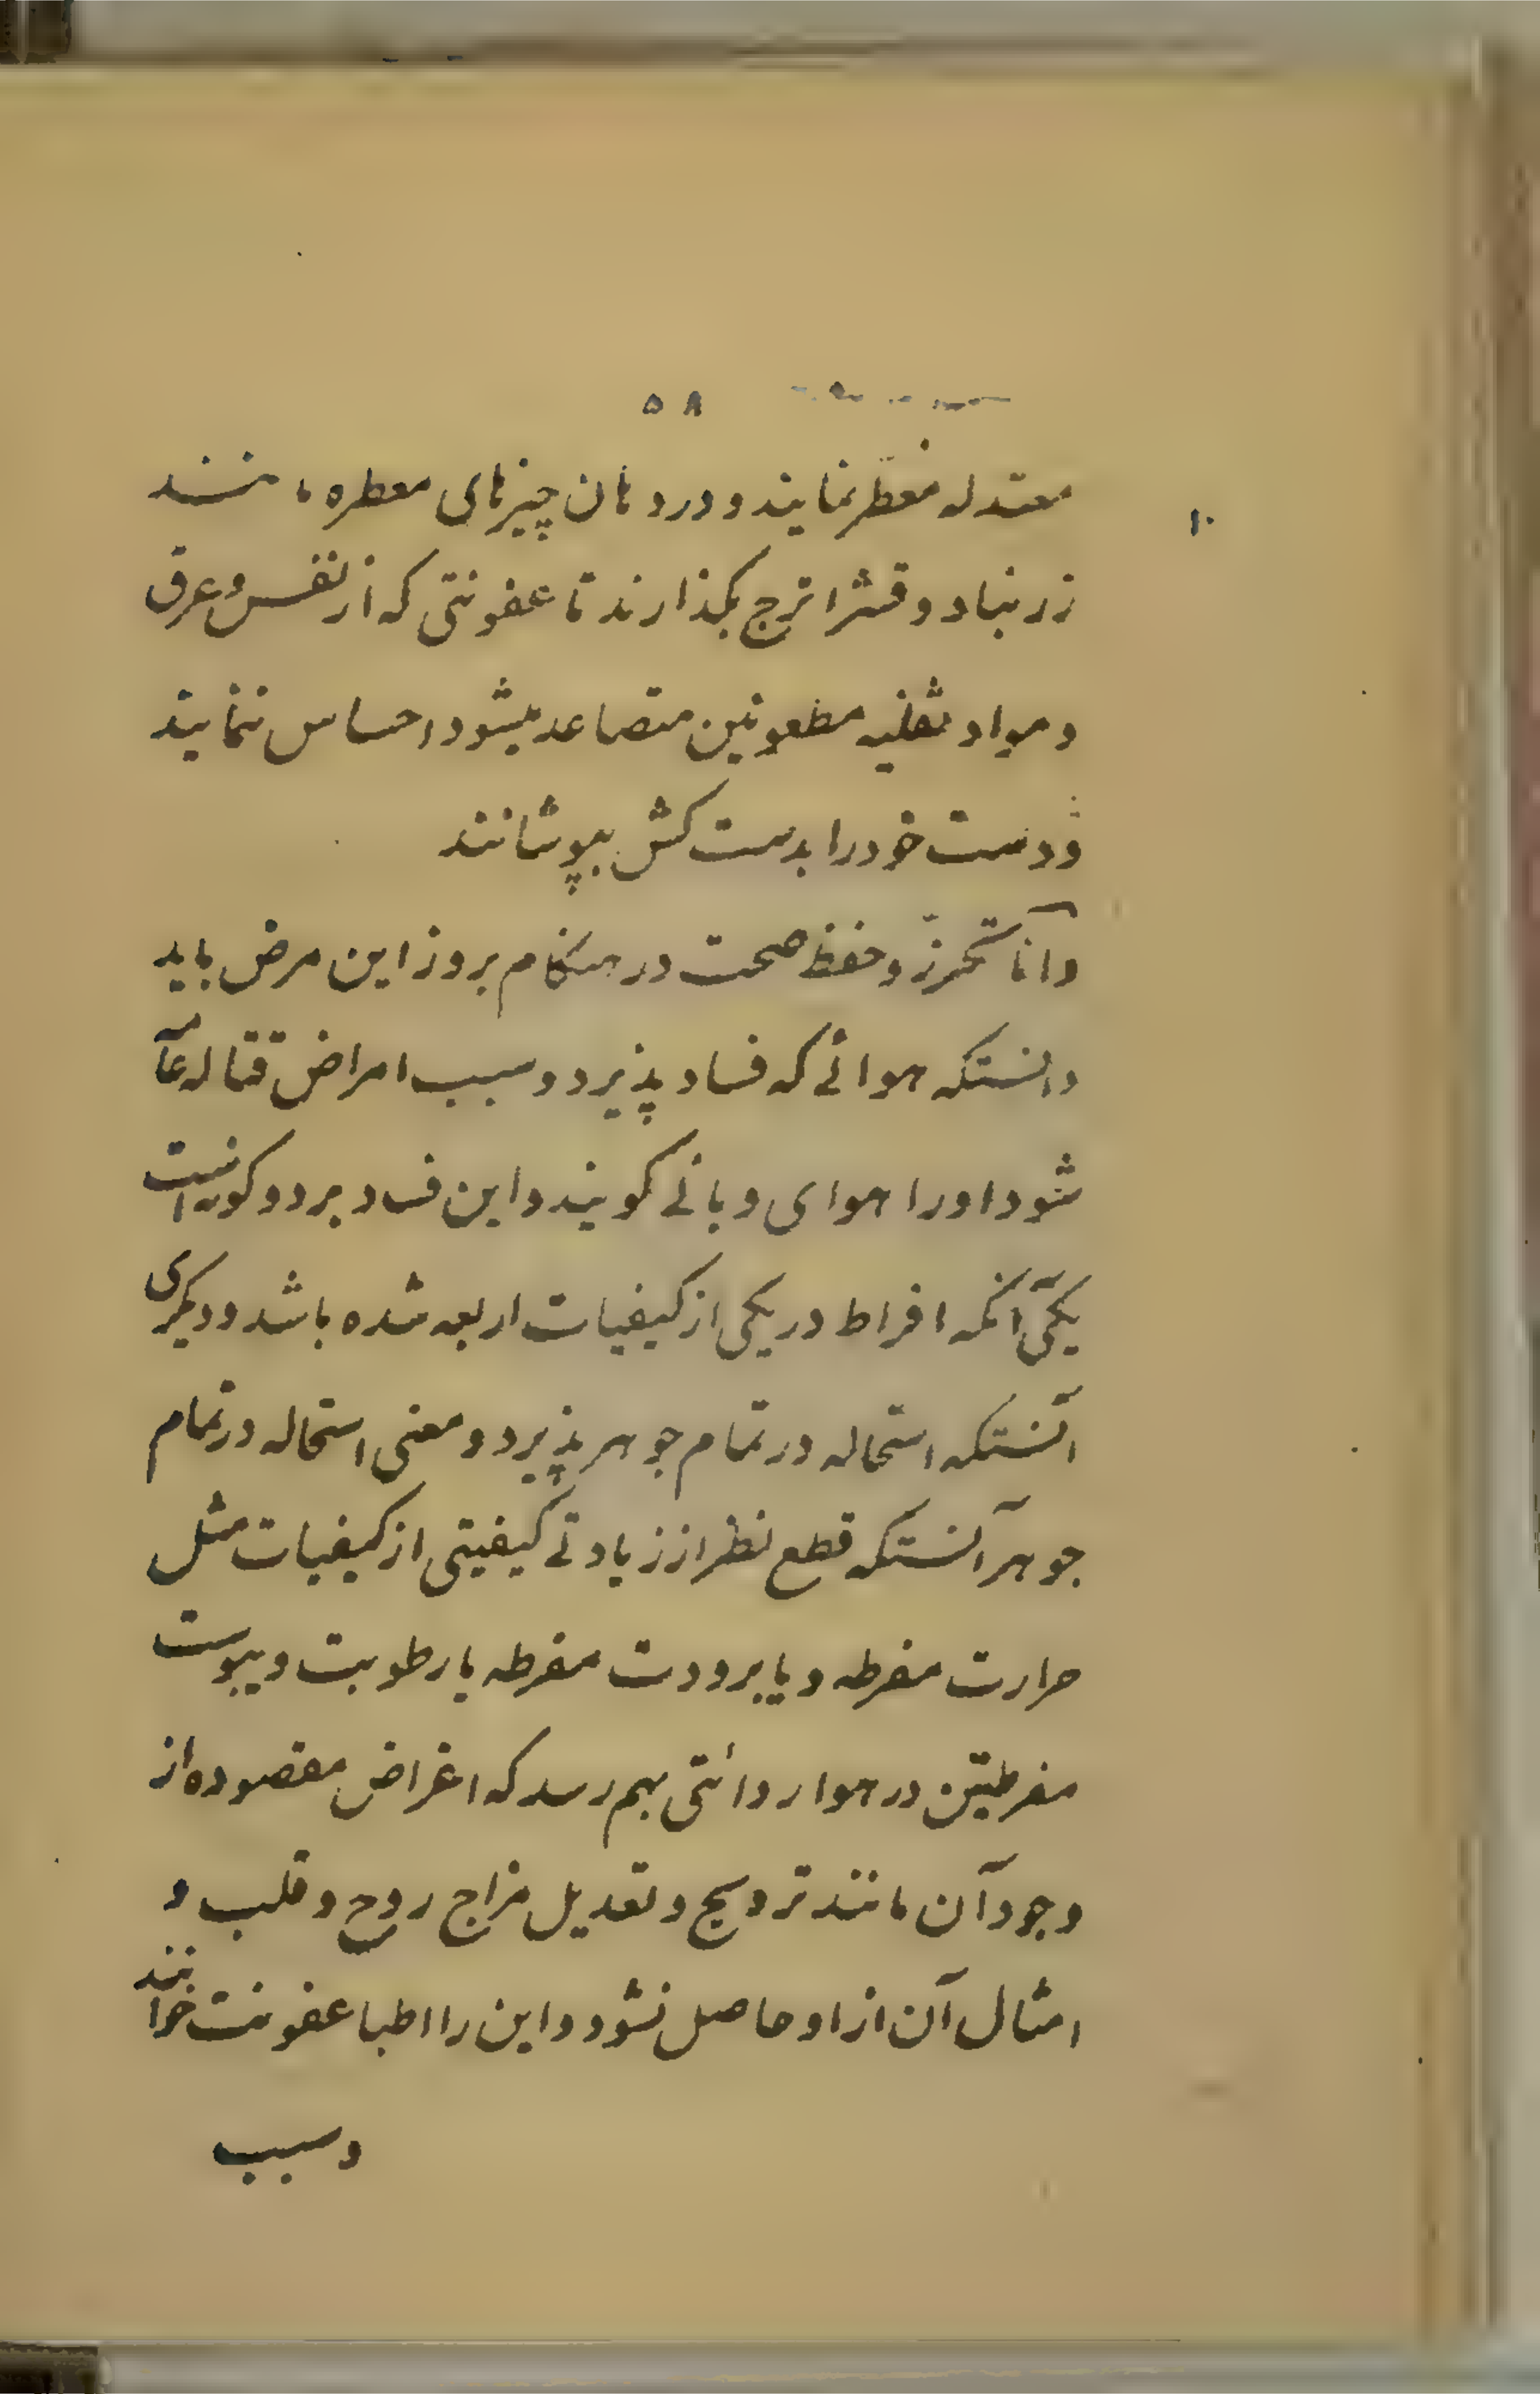 ۵۸
معتدله معطّر نمایند و در دهان چیزهای معطره مانند
زرنباد و قشر اترج بگذارند تا عفونتی که از نفس و عرق
و مواد ثفلیه مطعونین متصاعد میشود احساس ننمایند
و دست خود را بدست کش بپوشانند
و امّا تحرّز و حفظ صحت در هنگام بروز این مرض باید
دانستکه هوائی که فساد پذیرد و سبب امراض قتاله عامّه
شود او را هوای وبائی گویند و این فساد بر دو گونه است
یکی آنکه افراط در یکی از کیفیات اربعه شده باشد و دیگری
آنستکه استحاله در تمام جوهر پذیرد و معنی استحاله در تمام
جوهر آنستکه قطع نظر از زیادتی کیفیتی از کیفیات مثل
حرارت مفرطه و یا برودت مفرطه یا رطوبت و یبوست
مفرطتین در هوا ردائتی بهم رسد که اغراض مقصوده از
وجود آن مانند ترویح و تعدیل مزاج روح و قلب و
امثال آن از او حاصل نشود و این را اطبا عفونت خوانند
و سبب